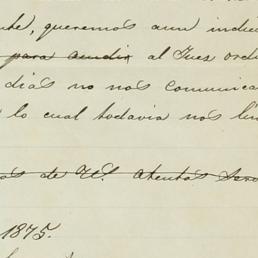 nte, queremos aun indic
para acudir al Juez ord
dias no nos comunica
lo cual todavia nos lim
os de Ud. atentos Ser
1875.